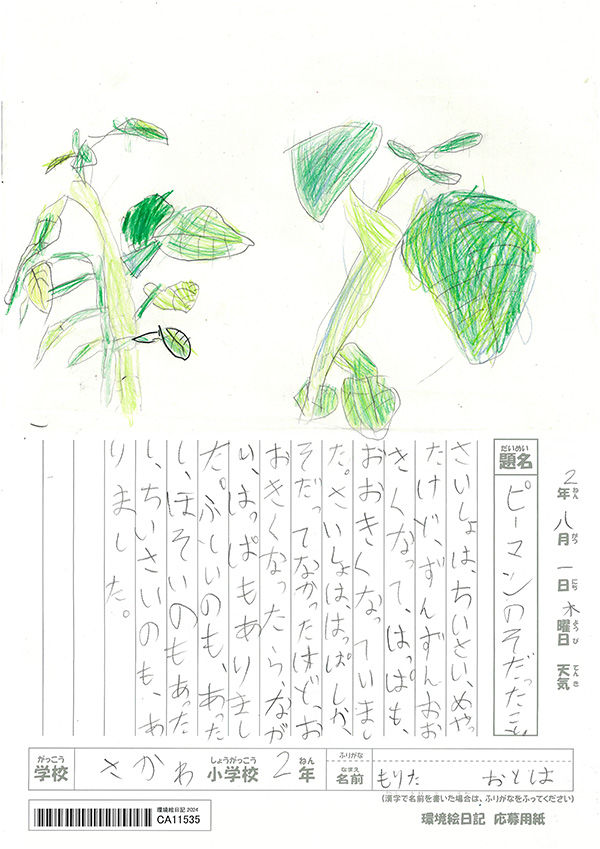 2年八月一日木曜日 天気
ねん がつ にち ようび てんき
だいめい
題名
ピーマンのそだったこと
さいしょは、ちいさい、めやっ
たけど、ずんずんおお
きくなって、はっぱも、
おおきくなっていまし
た。さいしょは、はっぱしか、
そだってなかったけど、お
おきくなったら、なが
い、はっぱもありまし
た。ふしいのも、あった
し、ほそいのもあった
し、ちいさいのも、あ
りました。
がっこう
学校
さかわ
しょうがっこう
小学校
2
ねん
年
ふりがな
なまえ
名前
もりた おとは
(漢字で名前を書いた場合は、ふりがなをふってください)
環境絵日記 2024
CA11535
環境絵日記 応募用紙